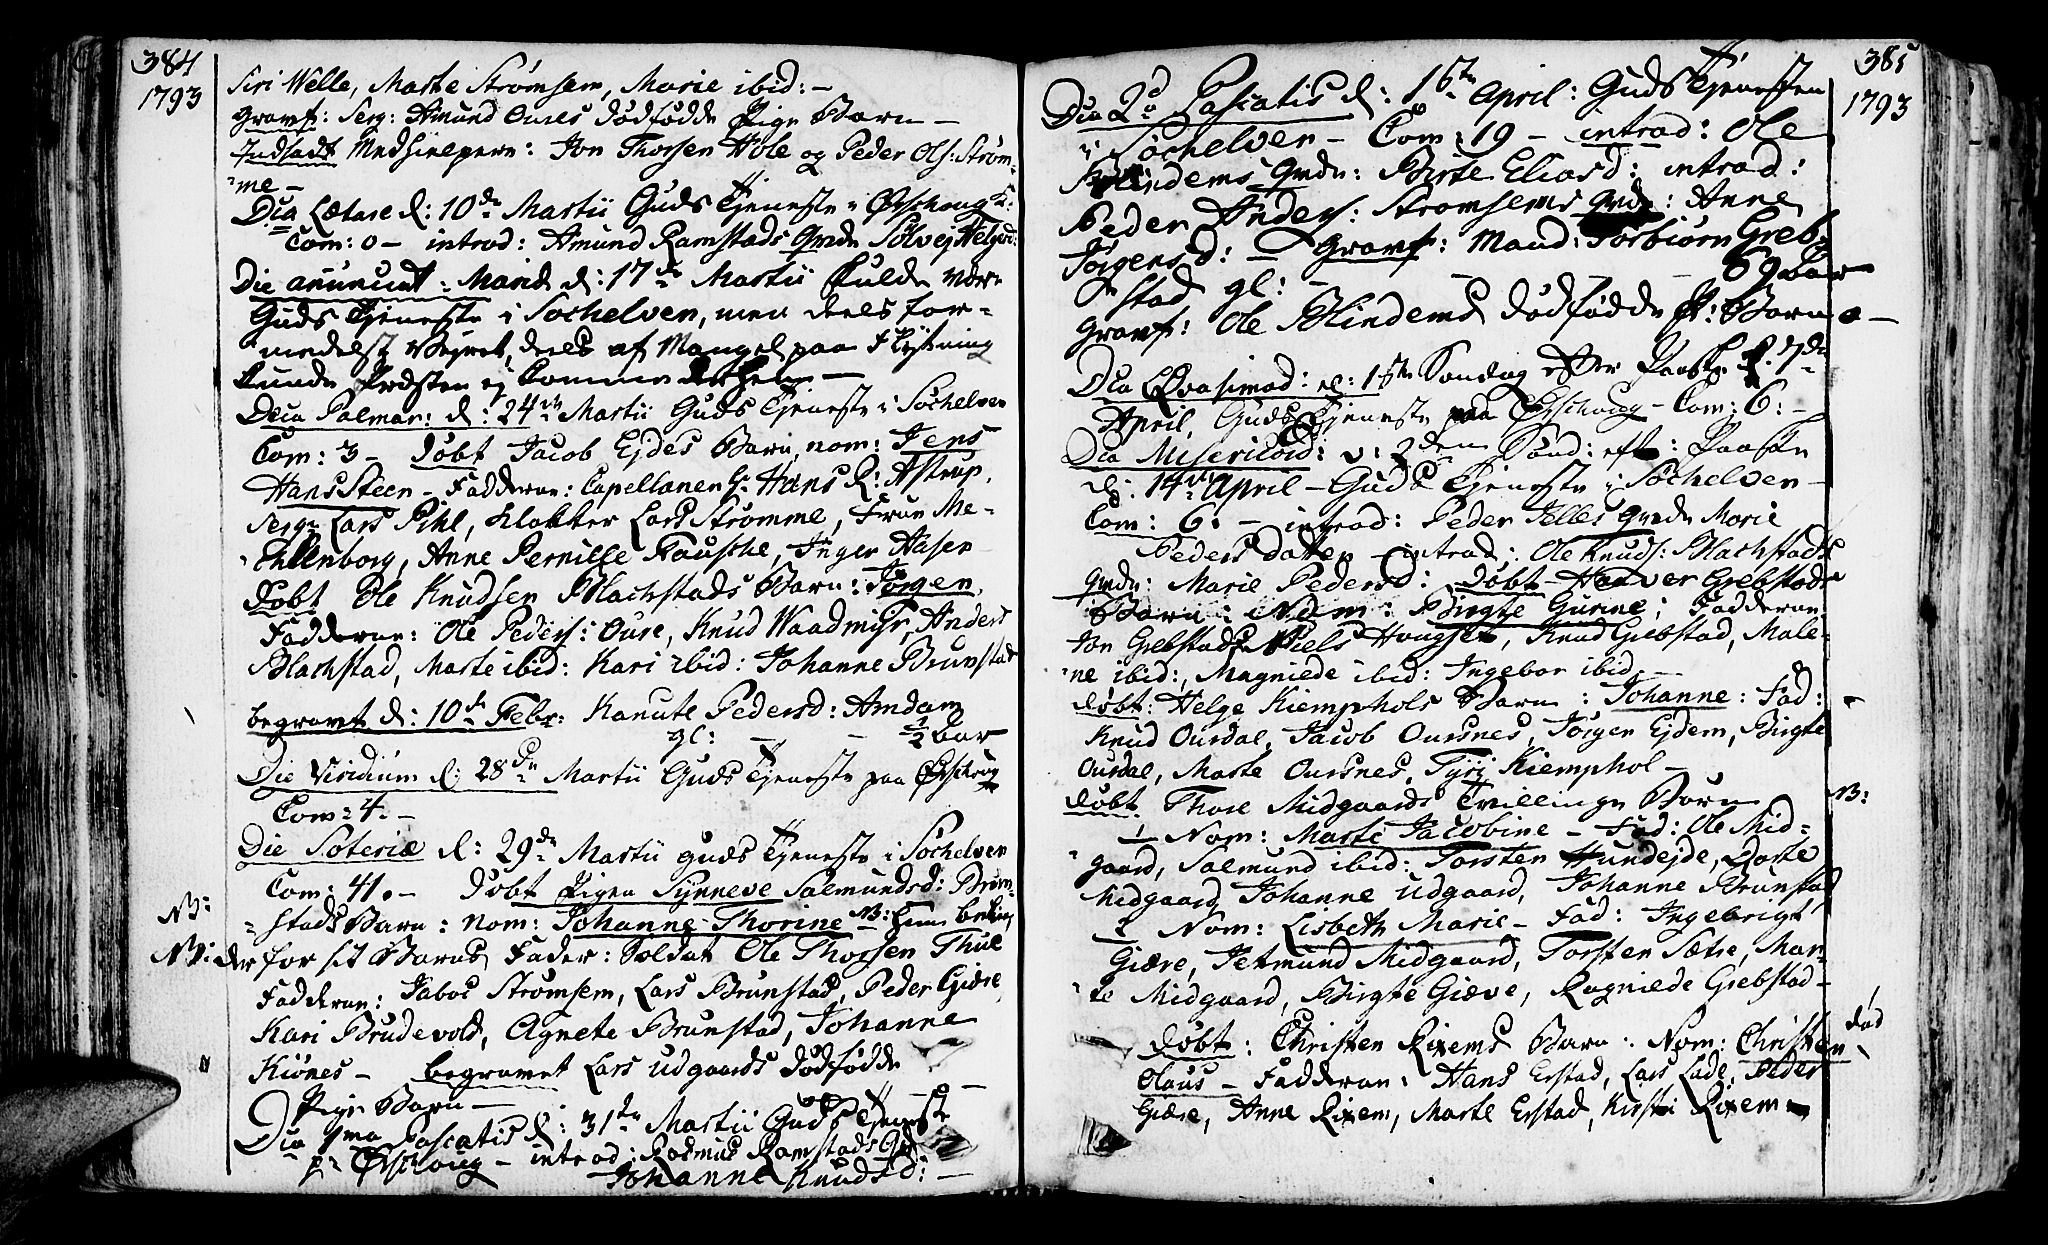 384
1793
Siri Welle, Marte Strømsem, Marie ibid: –
Gravf: Serg: Amund Oures dødfødde Pige Barn –
Indsadt Medhielpere: Jon Thorsen Hole og Peder Ols: Strøm-
me –
Dca Lætare d: 10de Martii Guds Tjeneste i Ørschoug K:
Com: 0 – introd: Amund Ramstads Qvde Sølvej Helgesd:
Die anunciat: Mariæ d: 17de Martii skulde være
Guds Tjeneste i Sochelven, men deels for-
medelst Vejret, deels af Mangel paa Flytning
kunde Præsten ej komme derhen –
Dca Palmar: d: 24de Martii Guds Tjeneste i Sochelven
Com: 3 – døbt Jacob Ejdes Barn, nom: Jens
Hans Steen – Fadderne: Capellanen Hr Hans R: Astrup,
Serge Lars Pihl, Klokker Lars Strømme, Frue Me-
chlenborg, Anne Pernille Fausche, Inger Aasen
Døbt Ole Knudsen Blachstads Barn: Jørgen
Fadderne: Ole Peders: Oure, Knud Waadmyr, Anders
Blachstad, Marte ibid: Kari ibid: Johanne Brunstad
begravet d: 10de Febr: Kanute Pedersd: Amdam
gl: – – ½ Aar
Die Viridium d: 28de Martii Guds Tjeneste paa Ørschoug
Com: 4. –
Die Soteriæ d: 29de Martii Guds Tjeneste i Sochelven
Com: 41. – døbt Pigen Synneve Salmundsd: Brun-
NB: stads Barn: nom: Johanne Thorine NB: hun bekien-
NB: der for sit Barns Fader: Soldat Ole Thorsen Thue
Fadderne: Jabos Strømsem, Lars Brunstad, Peder Giære
Kari Brudevold, Agnete Brunstad, Johanne
Kiønes – begravet Lars Udgaards dødfødde
Pige Barn –
Dca 1ma Pascatis d: 31te Martii Guds Tjeneste
p: Ørschoug – introd: Rasmus Ramstads Qvd
Johanne Knudsd: –
385
1793
Dca 2da Pascatis d: 1ste April: Guds Tjenesten
i Sochelven – Com: 19 – introd: Ole
Blindems Qvde: Birte Eliasd: introd:
Peder Anders: Strømsems Qvde: Anne
Jørgensd: – Gravf: Mand: Torbiørn Greb-
stad gl: – 69 Aar
Gravf: Ole Blindems dødfødde P: Barn –
Dca Qvasimod: d: 1ste Søndag efter Paaske d. 7de
April, Guds Tjeneste paa Ørschoug – Com: 6: –
Dca Misericord: v: 2den Sønd: eft: Paaske
d: 14de April – Guds Tjeneste i Sochelven –
Com: 6: – introd: Peder Velles Qvde Marie
Peders datter – introd: Ole Knuds: Blachstads
Qvde: Marie Pedersd: døbt – Haaver Grebstads
Barn: Nom: Birgte Gurine; Fadderne
Jon Grebstad, Niels Hougset, Knud Grebstad, Male-
ne ibid:, Magniede ibid: Ingebor ibid –
døbt: Helge Kiemphols Barn: Johanne: Fad:
Knud Ourdal, Jacob Oursnes, Jørgen Ejdem, Birgte
Ourdal, Marte Oursnes, Tyri Kiemphol –
døbt Thore Midgaards Tvillinge Børn NB:
1 Nom: Marte Jacobine – Fad: Ole Mid-
gaard, Salmund ibid: Torsten Hundejde, Dorte
Midgaard, Johanne Udgaard, Johanne Brunstad
2 Nom: Lisbeth Marie – Fad: Ingebrigt
Giære, Jetmund Midgaard, Torsten Sætre, Mar-
te Midgaard, Birgte Giæve, Ragniede Grebstad –
døbt: Christen Rixems Barn: Nom: Christen død
Olaus – Fadderne: Hans Erstad, Lars Lade, Peder
Giære, Anne Rixem, Marte Erstad, Kirsti Rixem –